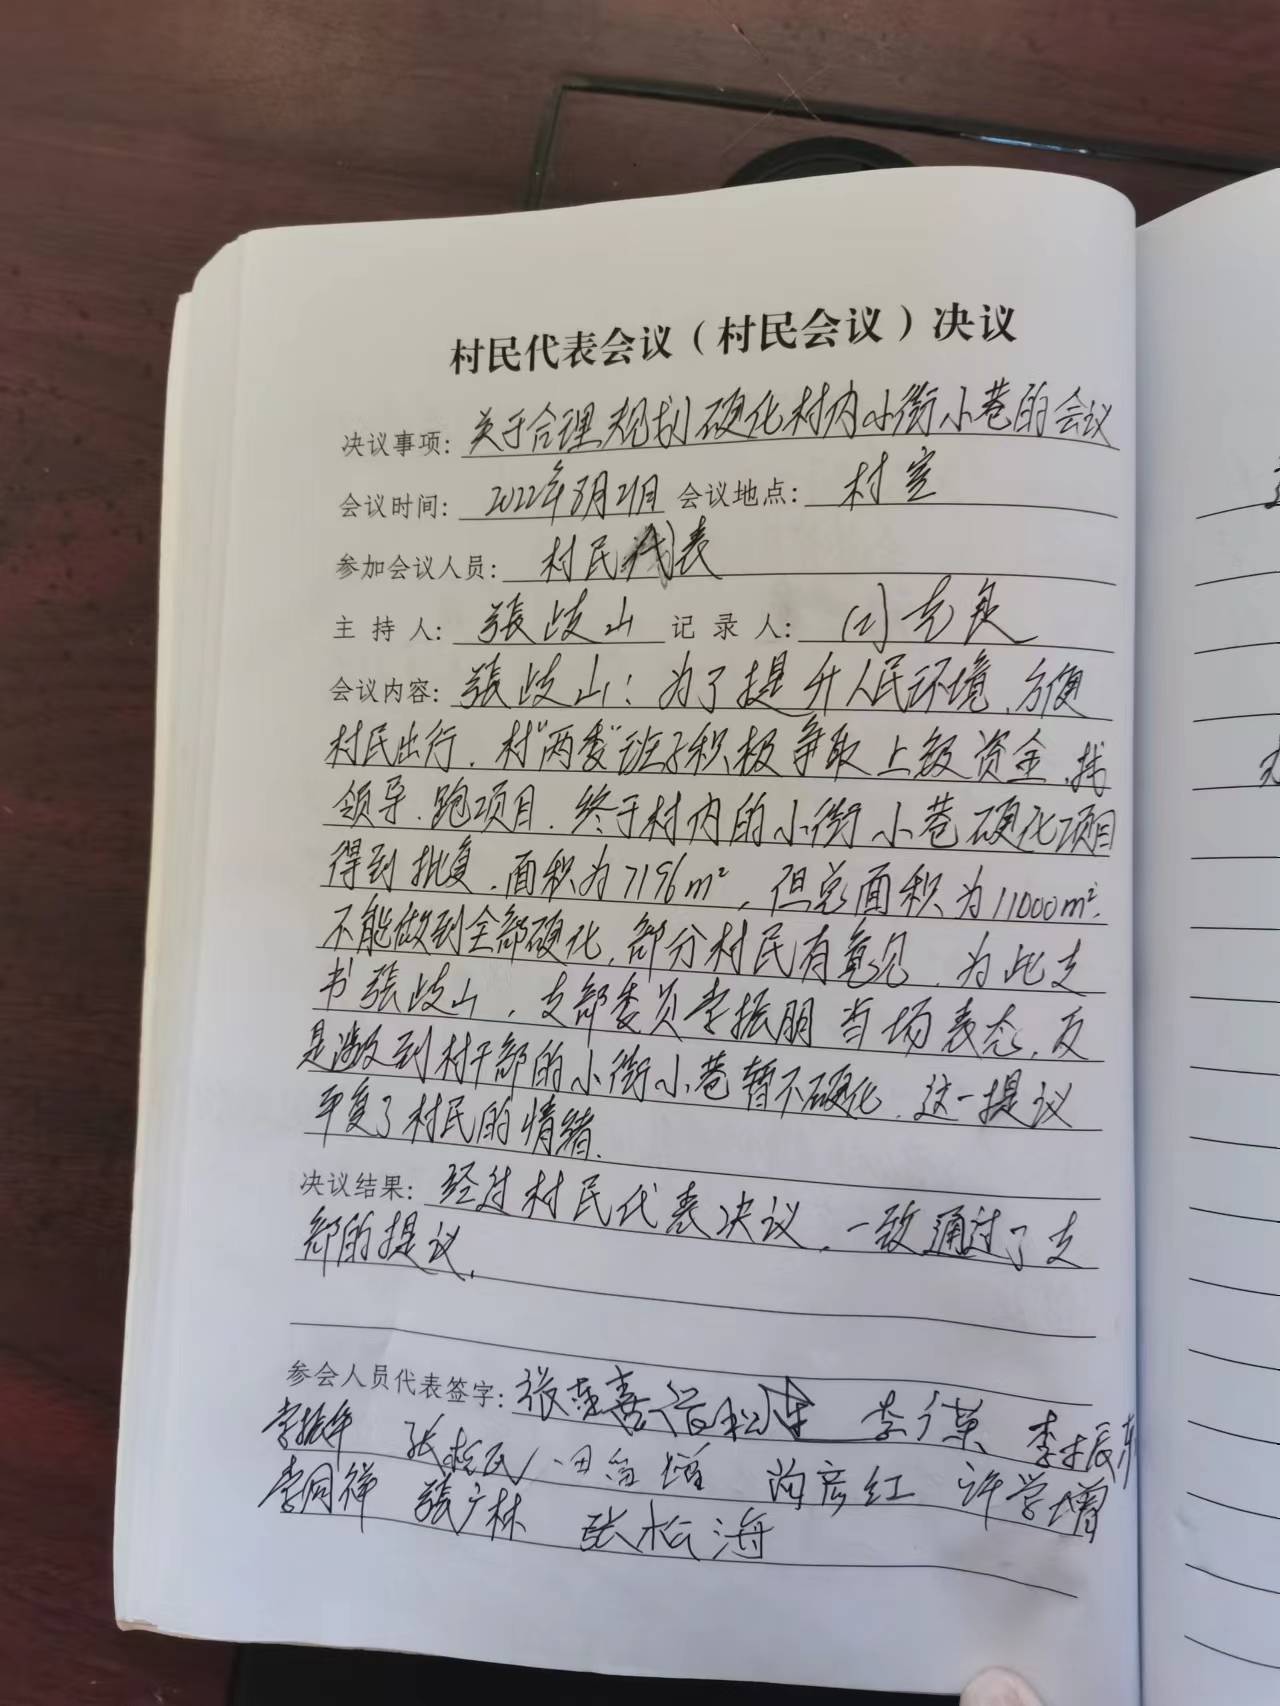 村民代表会议（村民会议）决议
决议事项: 关于合理规划硬化村内小街小巷的会议
会议时间: 2022年8月21日 会议地点: 村室
参加会议人员: 村民代表
主持人: 張歧山 记录人: 克良
会议内容: 張歧山: 为了提升人民环境、方便
村民出行.村"两委"班子积极争取上级资金、找
领导.跑项目.终于村内的小街小巷硬化项目
得到批复.面积为7196m²,但总面积为11000m².
不能做到全部硬化.部分村民有意见.为此支
书張歧山,支部委员李振朋当场表态.凡
是涉及到村干部的小街小巷暂不硬化.这一提议
平复了村民的情绪.
决议结果: 经过村民代表决议,一致通过了支
部的提议.
参会人员代表签字: 李振东
李振年 田 增 陶彦红 许学增
李同祥 張广林 张松海